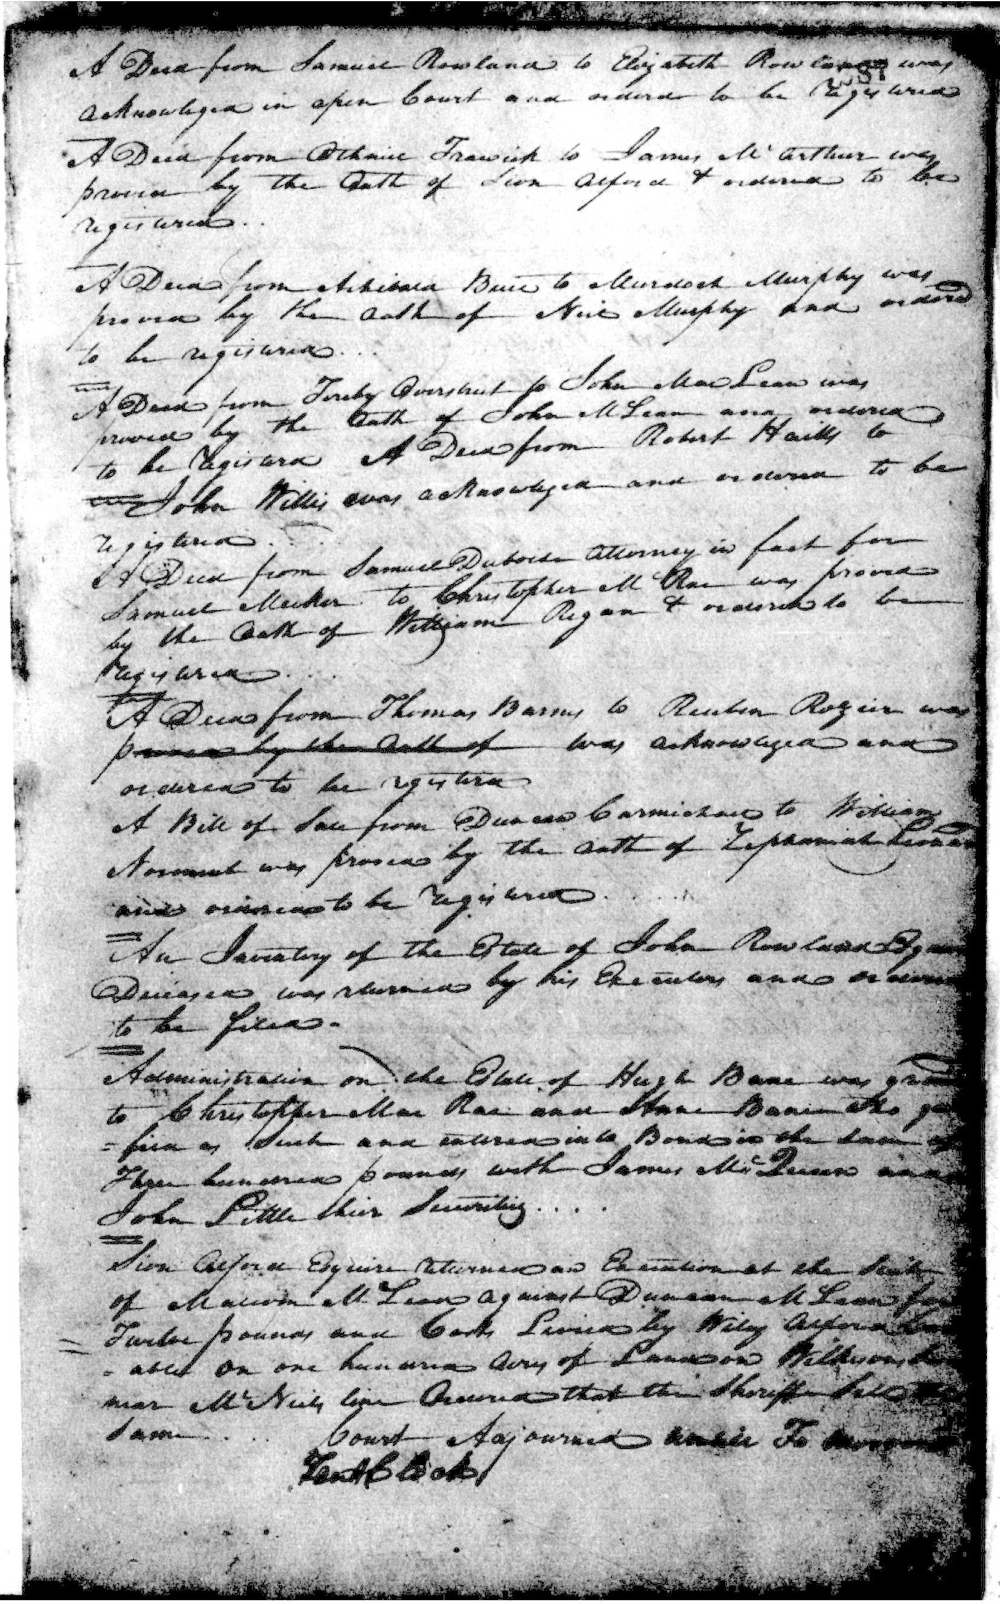 A Deed from Samuel Rowland to Elizabeth Rowland was
acknowleged in open Court and ordered to be registered
A Deed from Othniel Trawick to James Mc Arthur was
proved by the Oath of Sion Alford & ordered to be
registered . .
A Deed from Archibald Buie to Murdoch Murphy was
proved by the oath of Neil Murphy and ordered
to be registered . . .
A Deed from Overstreet to John Mac Lean was
proved by the Oath of John McLean and ordered
to be registered A Deed from Robert to
John Willis was acknowleged and ordered to be
registered . . .
A Deed from Samuel Attorney in fact for
Samuel Meeker to Christopher McRae was proved
by the Oath of William Regan & ordered to be
registered . . .
A Deed from Thomas Barnes to Reuben Rozier was
proved by the Oath of was acknowleged and
ordered to be registered
A Bill of Sale from Duncan Carmichael to William
Norment was proved by the oath of Zephaniah
and ordered to be registered . . . .
An Inventory of the Estate of John Rowland
Deceased was returned by his Executors and ordered
to be filed -
Administration on the Estate of Hugh Bane was
to Christopher Mac Rae and Anne Bane who
= fied as Such and entered into Bond in the Sum of
Three hundred pounds with James McQueen and
John Little their Securities . . . .
Sion Alford Esquire returned an Execution at the Suit
of Malcom McLean against Duncan McLean for
Twelve pounds and Costs Levied by Wiley Alford
= able on one hundred Acres of Land on Wilkesons
near McNeils line Ordered that the Sheriff Sell the
Same . . . . Court Adjourned untill To morrow
Ten OClock